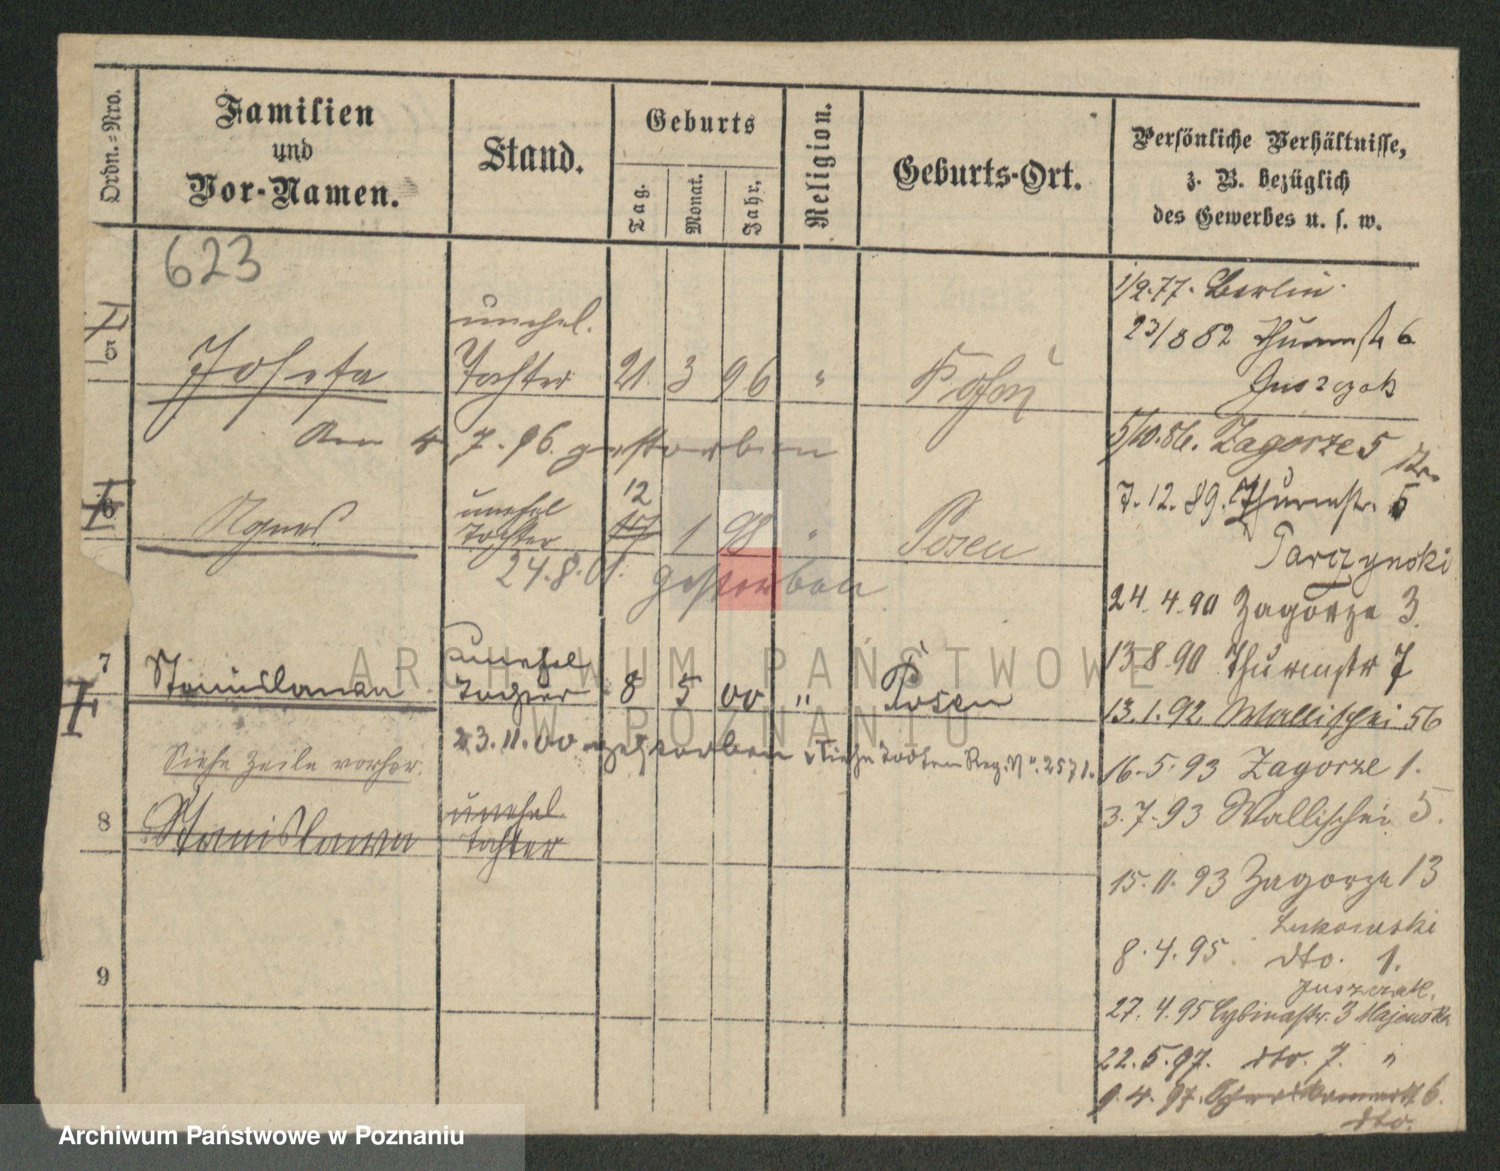 Ordn.=Nro.
Familien
und
Vor-Namen.
Stand.
Geburts
Tag.
Monat.
Jahr.
Religion.
Geburts-Ort.
Persönliche Verhältnisse,
z. B. bezüglich
des Gewerbes u. s. w.
623
5
unehel.
Josefa Tochter 21. 3 96 "
Am 4. 7. 96. gestorben
6
Agnes unehel Tochter 12 17 1 98 " Posen
24.8.01. gestorben
7
Stanislawa unehel Tochter 8 5 00 " Posen
23.11.00 gestorben siehe Todten Reg. No. 2571.
Siehe Zeile vorher.
8
Stanislawa unehel Tochter
9
1/2.77. Berlin
23/8 82 Thurmstr 6
Juszczak
5/10.86. Zagorze 5
7.12.89. Thurmstr. 5
Parczynski
24.4.90 Zagorze 3.
13.8.90 Thurmstr 7
13.1.92 Wallischei 56
16.5.93 Zagorze 1.
3.7.93 Wallischei 5.
15.11.93 Zagorze 13
Lukowski
8.4.95. dto. 1.
Juszczak.
27.4.95 Cybinastr. 3 Majewska
22.5.97. dto. 7. "
9.4.97. 6.
dto.
ARCHIWUM PAŃSTWOWE
W POZNANIU
Archiwum Państwowe w Poznaniu